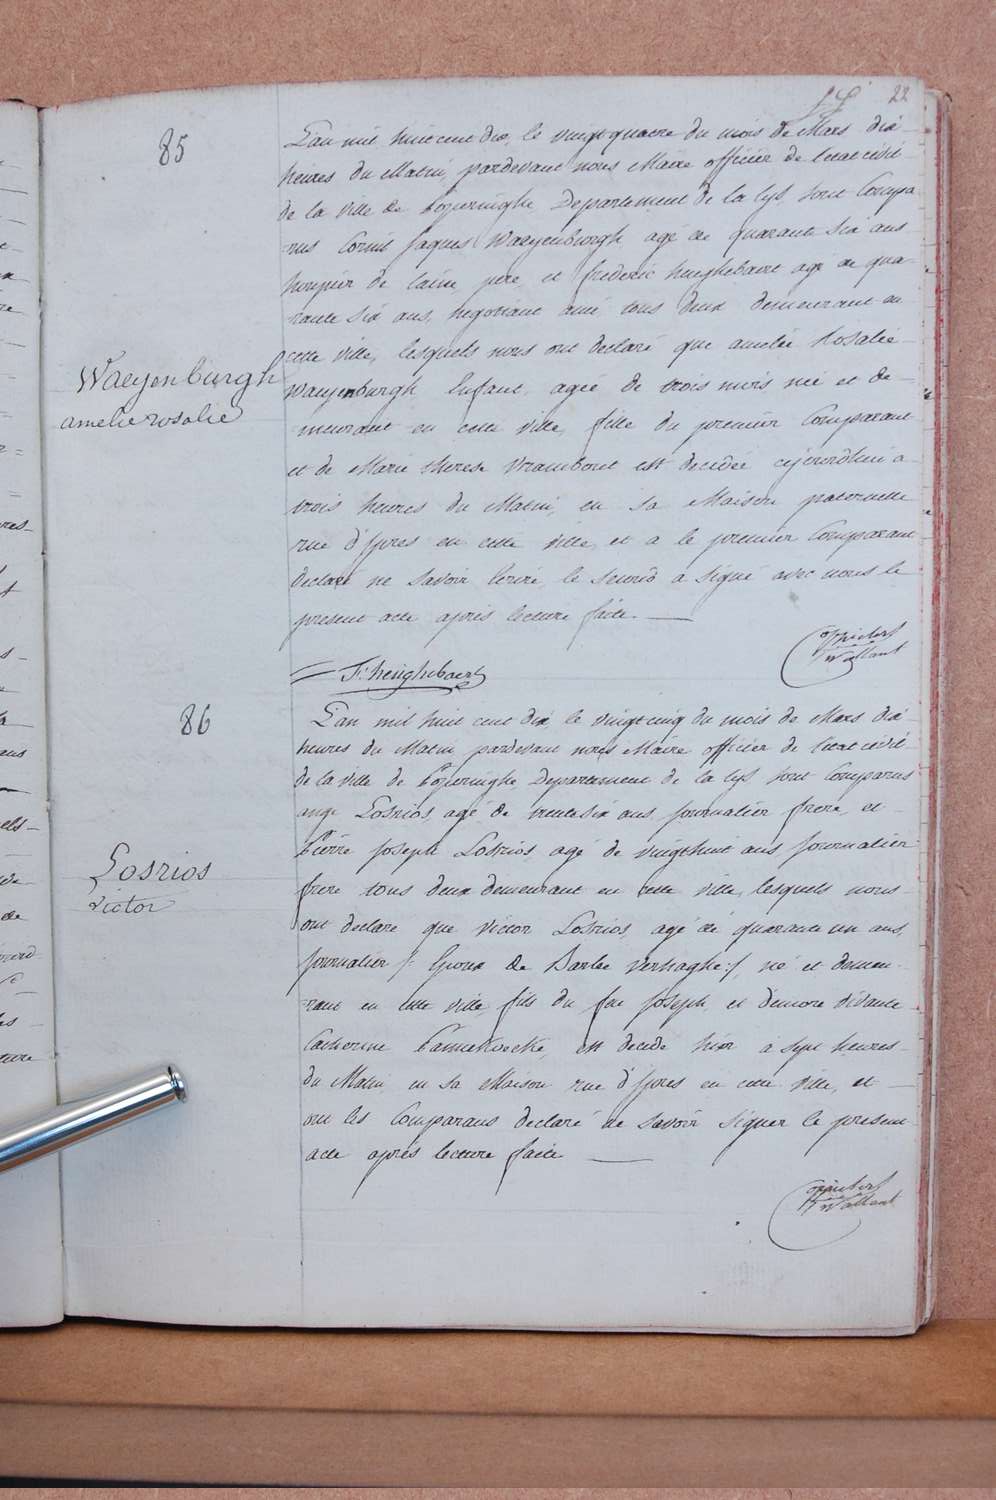 22
85
L'an mil huit cent dix, le vingt quatre du mois de Mars dix
heures du Matin, pardevant nous Maire officier de l'etat civil
de la ville de Poperinghe Departement de la Lys, sont Compa
=rus Cornil Jaques Waeyenburgh agé de quarante six ans
houpier de laine, pere, et frederic heughebaert agé de qua-
rante six ans, negotiant ami tous deux demeurant en
cette ville, lesquels nous ont declaré que amelie Rosalie
Waeyenburgh Enfant, agée de trois mois née et de-
meurant en cette ville, fille du premier Comparant
et de Marie therese Vrambout est decedée cejourd'hui a
trois heures du Matin, en sa Maison paternelle
rue d'Ypres en cette ville, et a le premier Comparant
declaré ne savoir Ecrire, le second a signé avec nous le
present acte après lecture faite.
Waeyenburgh
amelie rosalie
F: heughebaert
86
L'an mil huit cent dix, le vingt cinq du mois de Mars dix
heures du Matin, pardevant nous Maire officier de l'etat civil
de la ville de Poperinghe Departement de la Lys, sont Comparus
ange Losrios, agé de trente six ans, journalier frere, et
Pierre Joseph Losrios, agé de vingthuit ans journalier
frere tous deux demeurant en cette ville, lesquels nous
ont declaré que Victor Losrios, agé de quarante un ans,
journalier /: Epoux de Barbe Verhaghe :/, né et demeu-
=rant en cette ville, fils du feu Joseph, et d'encore vivante
Catherine Pannekoecke, est decedé hier à sept heures
du Matin, en sa Maison rue d'Ypres en cette ville, et
ont les Comparans declaré ne savoir signer le present
acte après lecture faite
Losrios
Victor